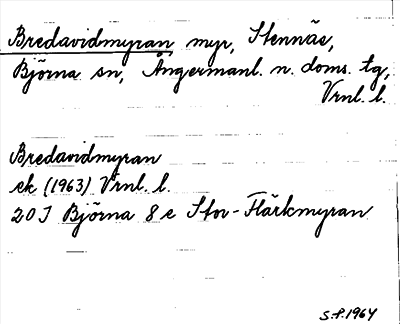 Bredavidmyran, myr, Stennäs,
Björna sn, Ångermanl. n. doms. tg,
Vrnl. l.
Bredavidmyran
ek (1963) Vrnl. l.
20 J Björna 8 e Stor-Flärkmyran
S.P. 1964